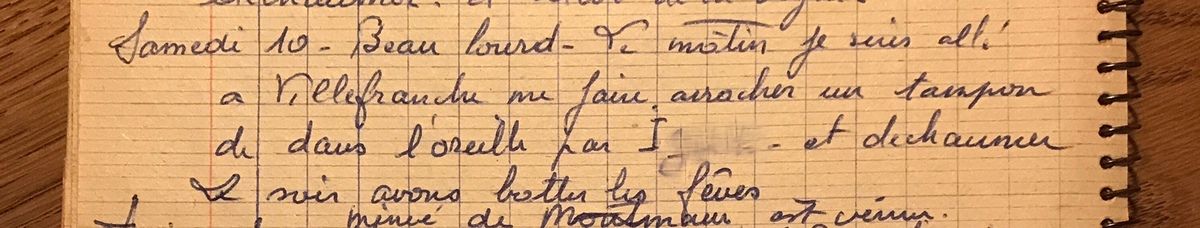 Samedi 10 - Beau lourd - Le matin je suis allé
a Villefranche me faire arracher un tampon
de dans l'oreille par - et dechaumer
Le soir avons botter les fêves
minié de Montmaur est venu.